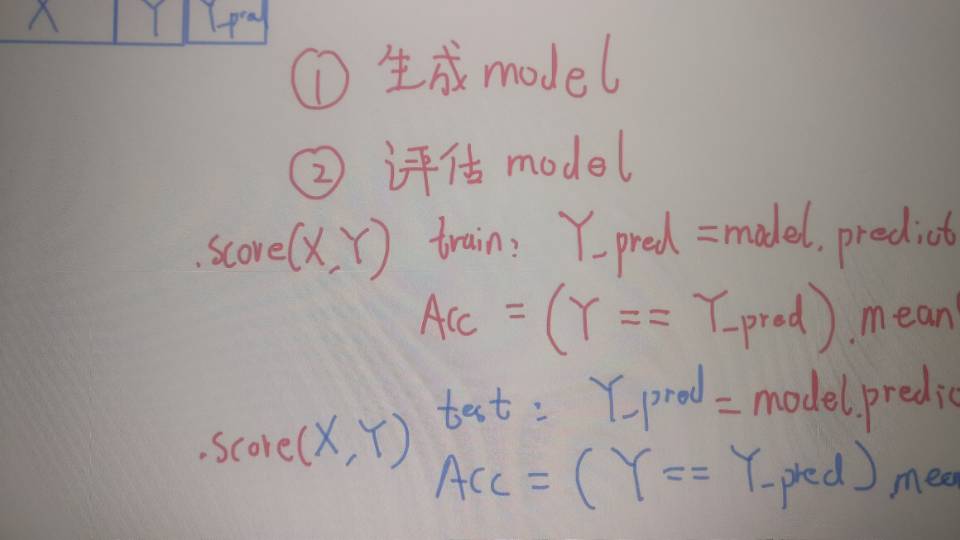 X Y Y_pred
① 生成 model
② 评估 model
.score(X,Y) train: Y_pred = model.predict
Acc = (Y == Y_pred).mean(
test: Y_pred = model.predic
.score(X,Y)
Acc = (Y == Y_pred).mean